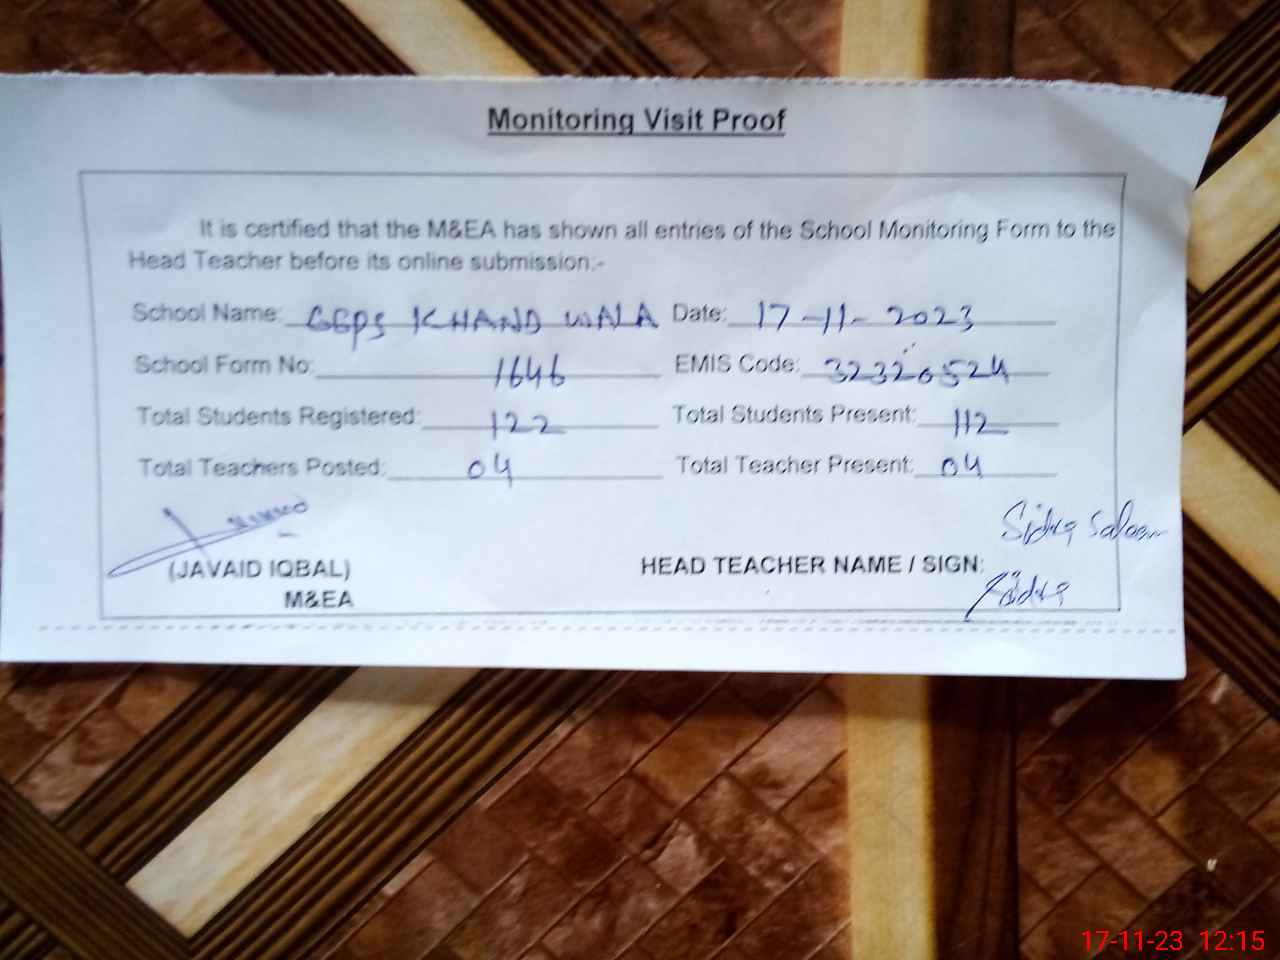 Monitoring Visit Proof
It is certified that the M&EA has shown all entries of the School Monitoring Form to the
Head Teacher before its online submission:-
School Name: GGPS KHAND WALA Date: 17-11-2023
School Form No: 1646 EMIS Code: 32320524
Total Students Registered: 122 Total Students Present: 112
Total Teachers Posted: 04 Total Teacher Present: 04
Sidra Saleem
(JAVAID IQBAL) HEAD TEACHER NAME / SIGN:
M&EA Sidra
17-11-23 12:15